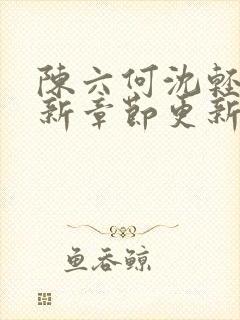 陳六何沈輕
新章節更新
魚吞鯨